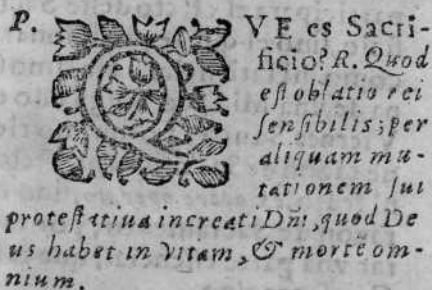 P. QVE es Sacri-
ficio? R. Quod
est oblatio rei
sensibilis; per
aliquam mu-
tationem sui
protestatiua increati Dñi, quod De
us habet in vitam, & mortē om-
nium.